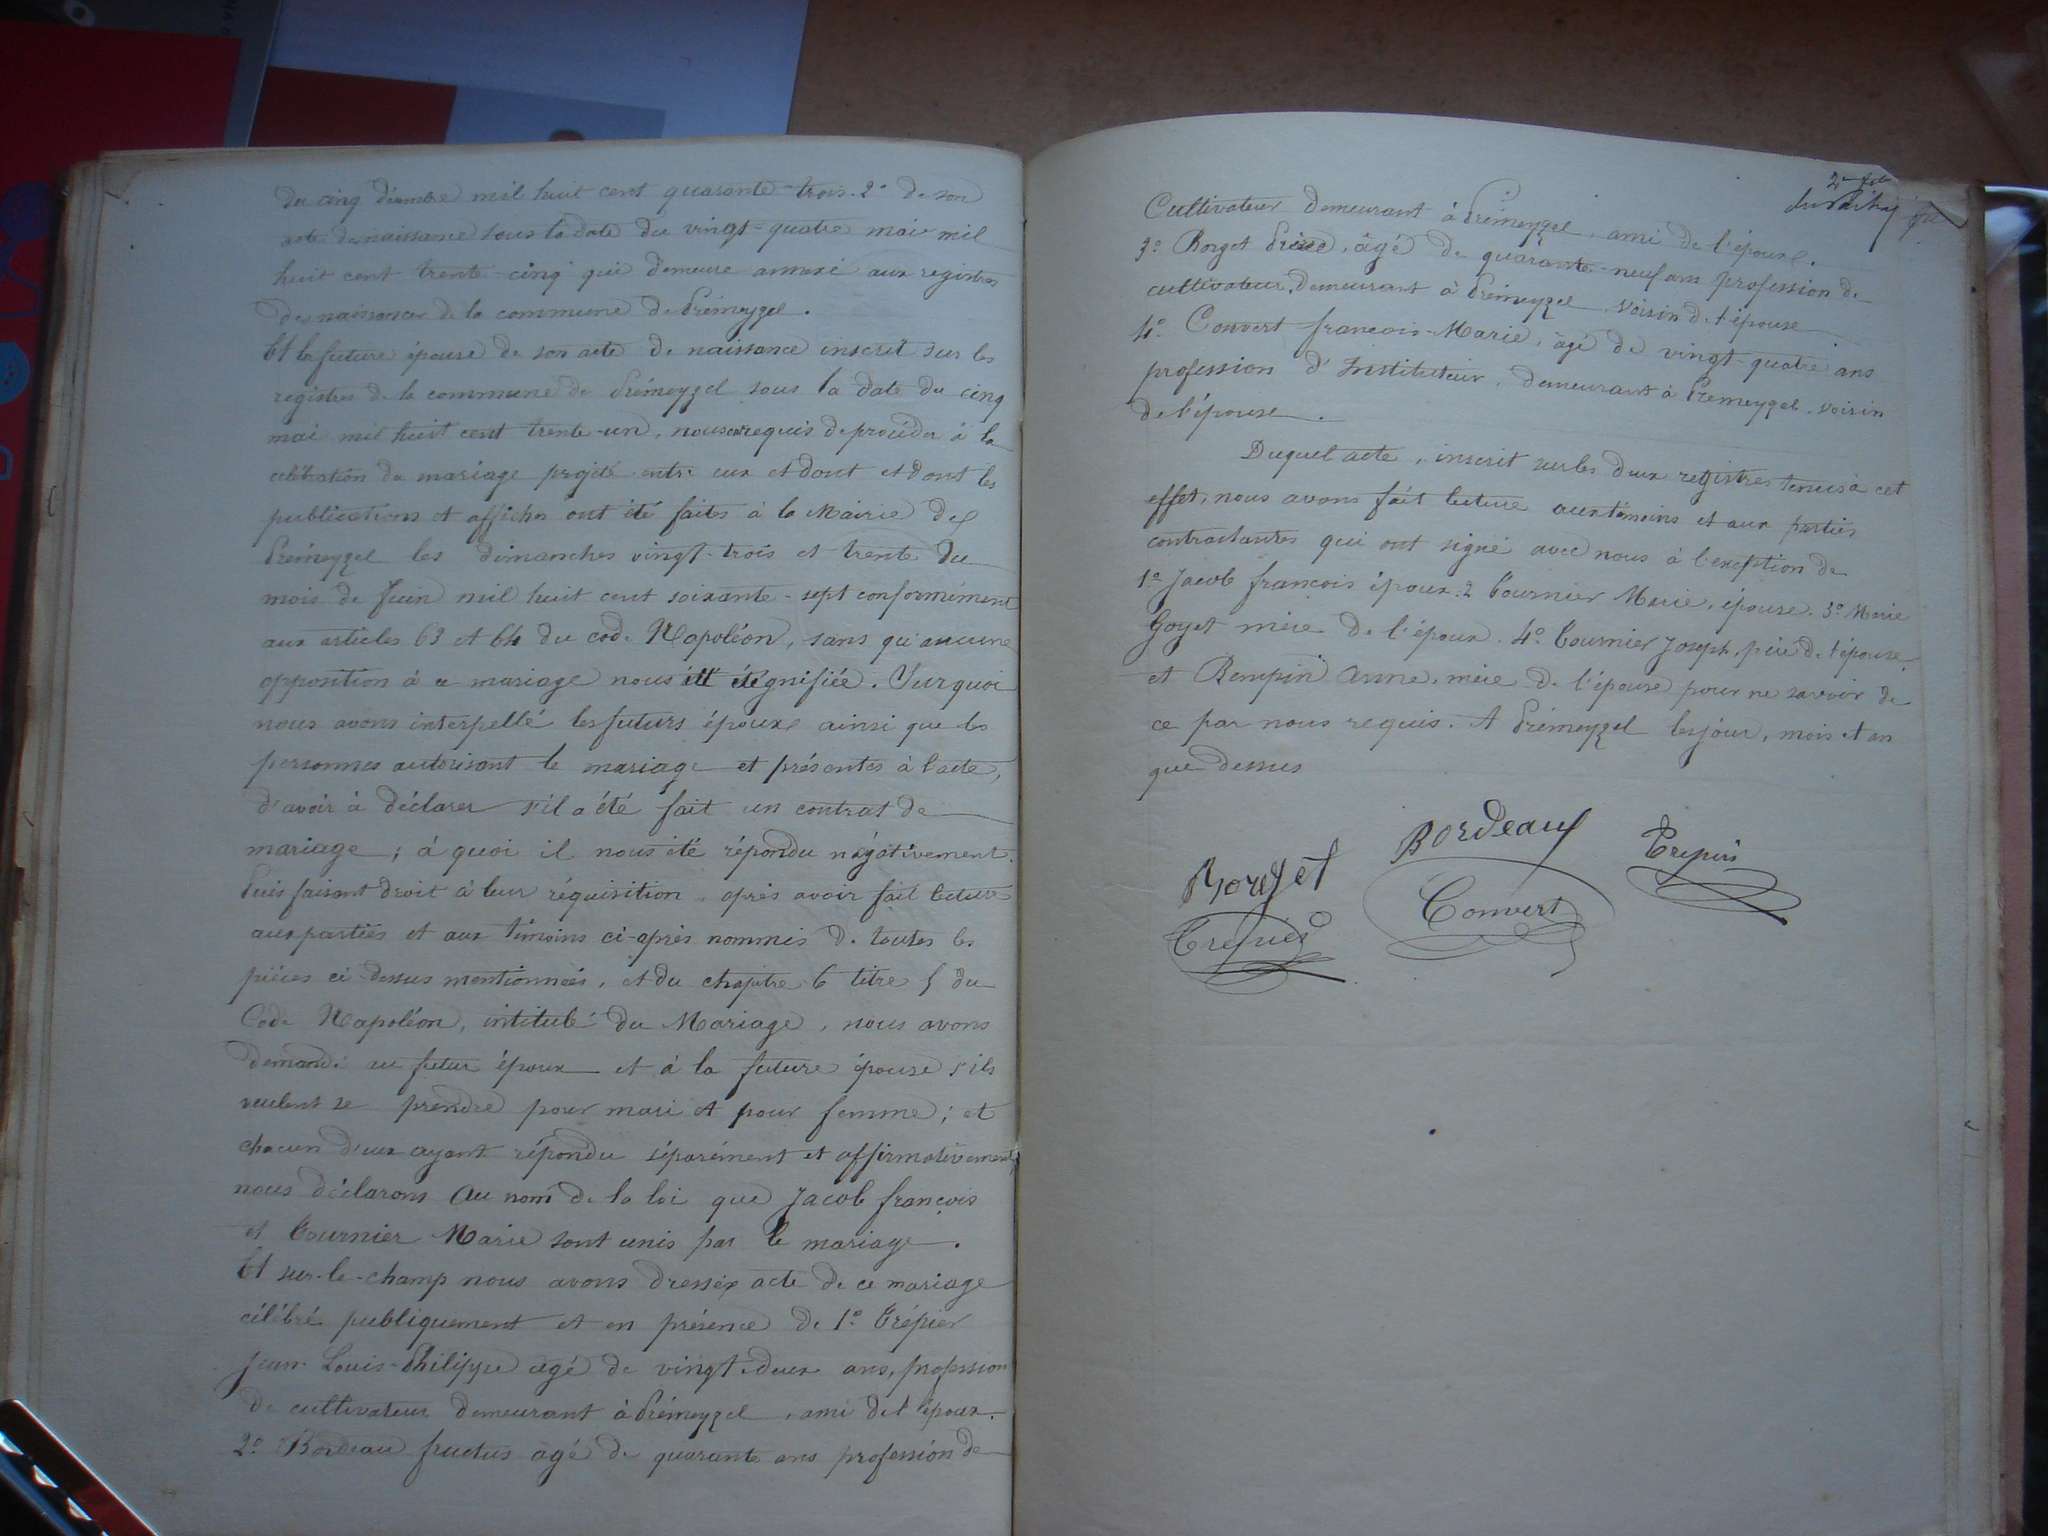 du cinq décembre mil huit cent quarante-trois. 2° de son
acte de naissance sous la date du vingt-quatre mai mil
huit cent trente-cinq qui demeure annexé aux registres
de naissances de la commune de Prémeyzel.
Et la future épouse de son acte de naissance inscrit sur les
registres de la commune de Prémeyzel sous la date du cinq
mai mil huit cent trente-un, nous ont requis de procéder à la
célébration du mariage projeté entre eux et dont et dont les
publications et affiches ont été faites à la Mairie de
Prémeyzel les dimanches vingt-trois et trente du
mois de Juin mil huit cent soixante-sept conformément
aux articles 63 et 64 du code Napoléon, sans qu'aucune
opposition à ce mariage nous ait été signifiée. Sur quoi
nous avons interpellé les futurs époux ainsi que les
personnes autorisant le mariage et présentes à l'acte,
d'avoir à déclarer s'il a été fait un contrat de
mariage; à quoi il nous été répondu négativement.
Puis faisant droit à leur réquisition, après avoir fait lecture
aux parties et aux témoins ci-après nommés de toutes les
pièces ci-dessus mentionnées, et du chapitre 6 titre 5 du
Code Napoléon, intitulé du Mariage, nous avons
demandé au futur époux et à la future épouse s'ils
veulent se prendre pour mari et pour femme; et
chacun d'eux ayant répondu séparément et affirmativement
nous déclarons au nom de la loi que Jacob françois
et Tournier Marie sont unis par le mariage.
Et sur-le-champ nous avons dressé acte de ce mariage
célébré publiquement et en présence de 1° Trépier
Jean-Louis-Philippe agé de vingt-deux ans, profession
de cultivateur demeurant à Prémeyzel, ami de l'époux.
2° Bordeau fructus agé de quarante ans profession de
2e
Cultivateur demeurant à Prémeyzel, ami de l'époux.
3° Borget, âgé de quarante-neuf ans profession de
cultivateur, demeurant à Prémeyzel voisin de l'épouse
4° Convert françois-Marie, âgé de vingt-quatre ans
profession d'Instituteur, demeurant à Prémeyzel, voisin
de l'épouse.
Duquel acte, inscrit sur les deux registres tenus à cet
effet, nous avons fait lecture aux témoins et aux parties
contractantes qui ont signé avec nous à l'exeption de
1° Jacob françois époux. 2 Tournier Marie, épouse. 3° Marie
Goyet mère de l'époux. 4° Tournier Joseph, père de l'épouse
et Rempin Anne, mère de l'épouse pour ne savoir de
ce par nous requis. A Prémeyzel les jour, mois et an
que dessus
Bordeaux
Trepier
Bourget
Convert
Trepier